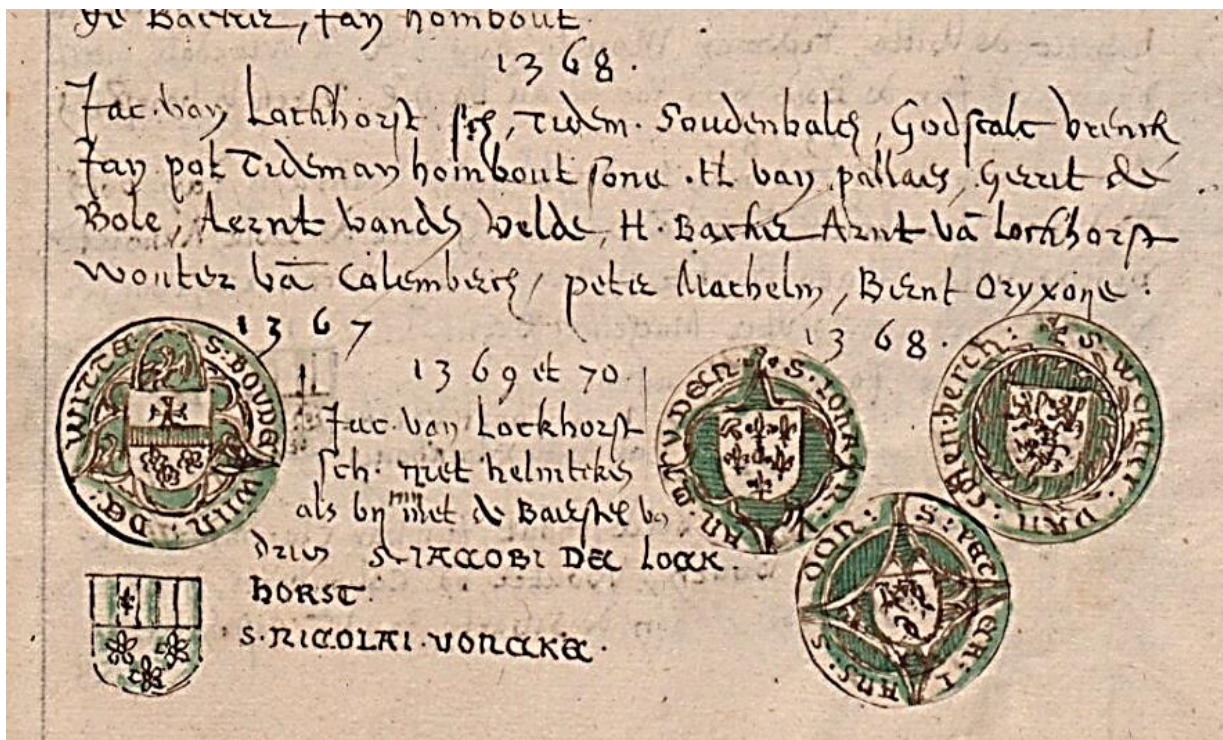 de Backer, Jan hombout.
1368.
Jac. van Lockhorst sch, Tidem. Soudenbalch, Godscalc vrenck
Jan pot Tideman hombout sone . H van pallaes, Gerrit de
Bole, Aernt vande velde, H. Backer Arnt vā Lockhorst
Wouter vā Culemberch / peter Machelm, Bernt Oryxone .
1367
1368.
1369 et 70.
Jac. van Lockhorst
sch. met helmteke
als by met de
S. IACOBI DE LOCK
HORST.
S. NICOLAI . VONCKE .
S. BOUDE WIIN : DE : WITTE
S. WOUTER : VAN :